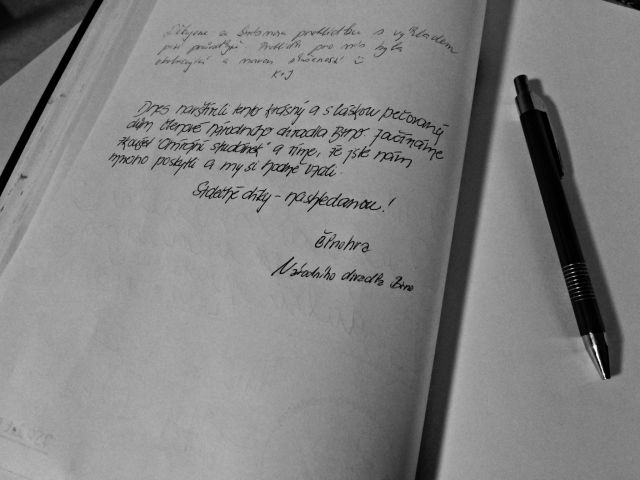 Děkujeme za prohlídku s výkladem
paní průvodkyně. Prohlídka pro nás byla
a
K+J
Dnes navštívili tento krásný a s láskou pečovaný
dům členové Národního divadla Brno. Začínáme
zkoušet Otvírání studánek a víme, že jste nám
mnoho poskytli a my si hodně vzali.
Srdečné díky - nashledanou!
činohra
Národního divadla Brno